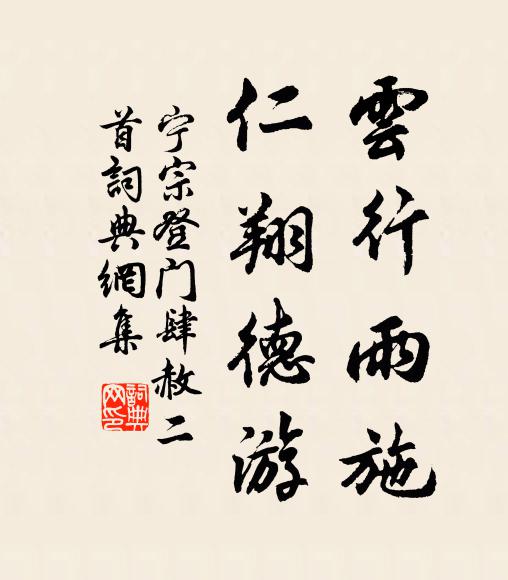 雲行雨施
仁翔德游
宁宗登门肆赦二
首詞典網集
詞典
网印